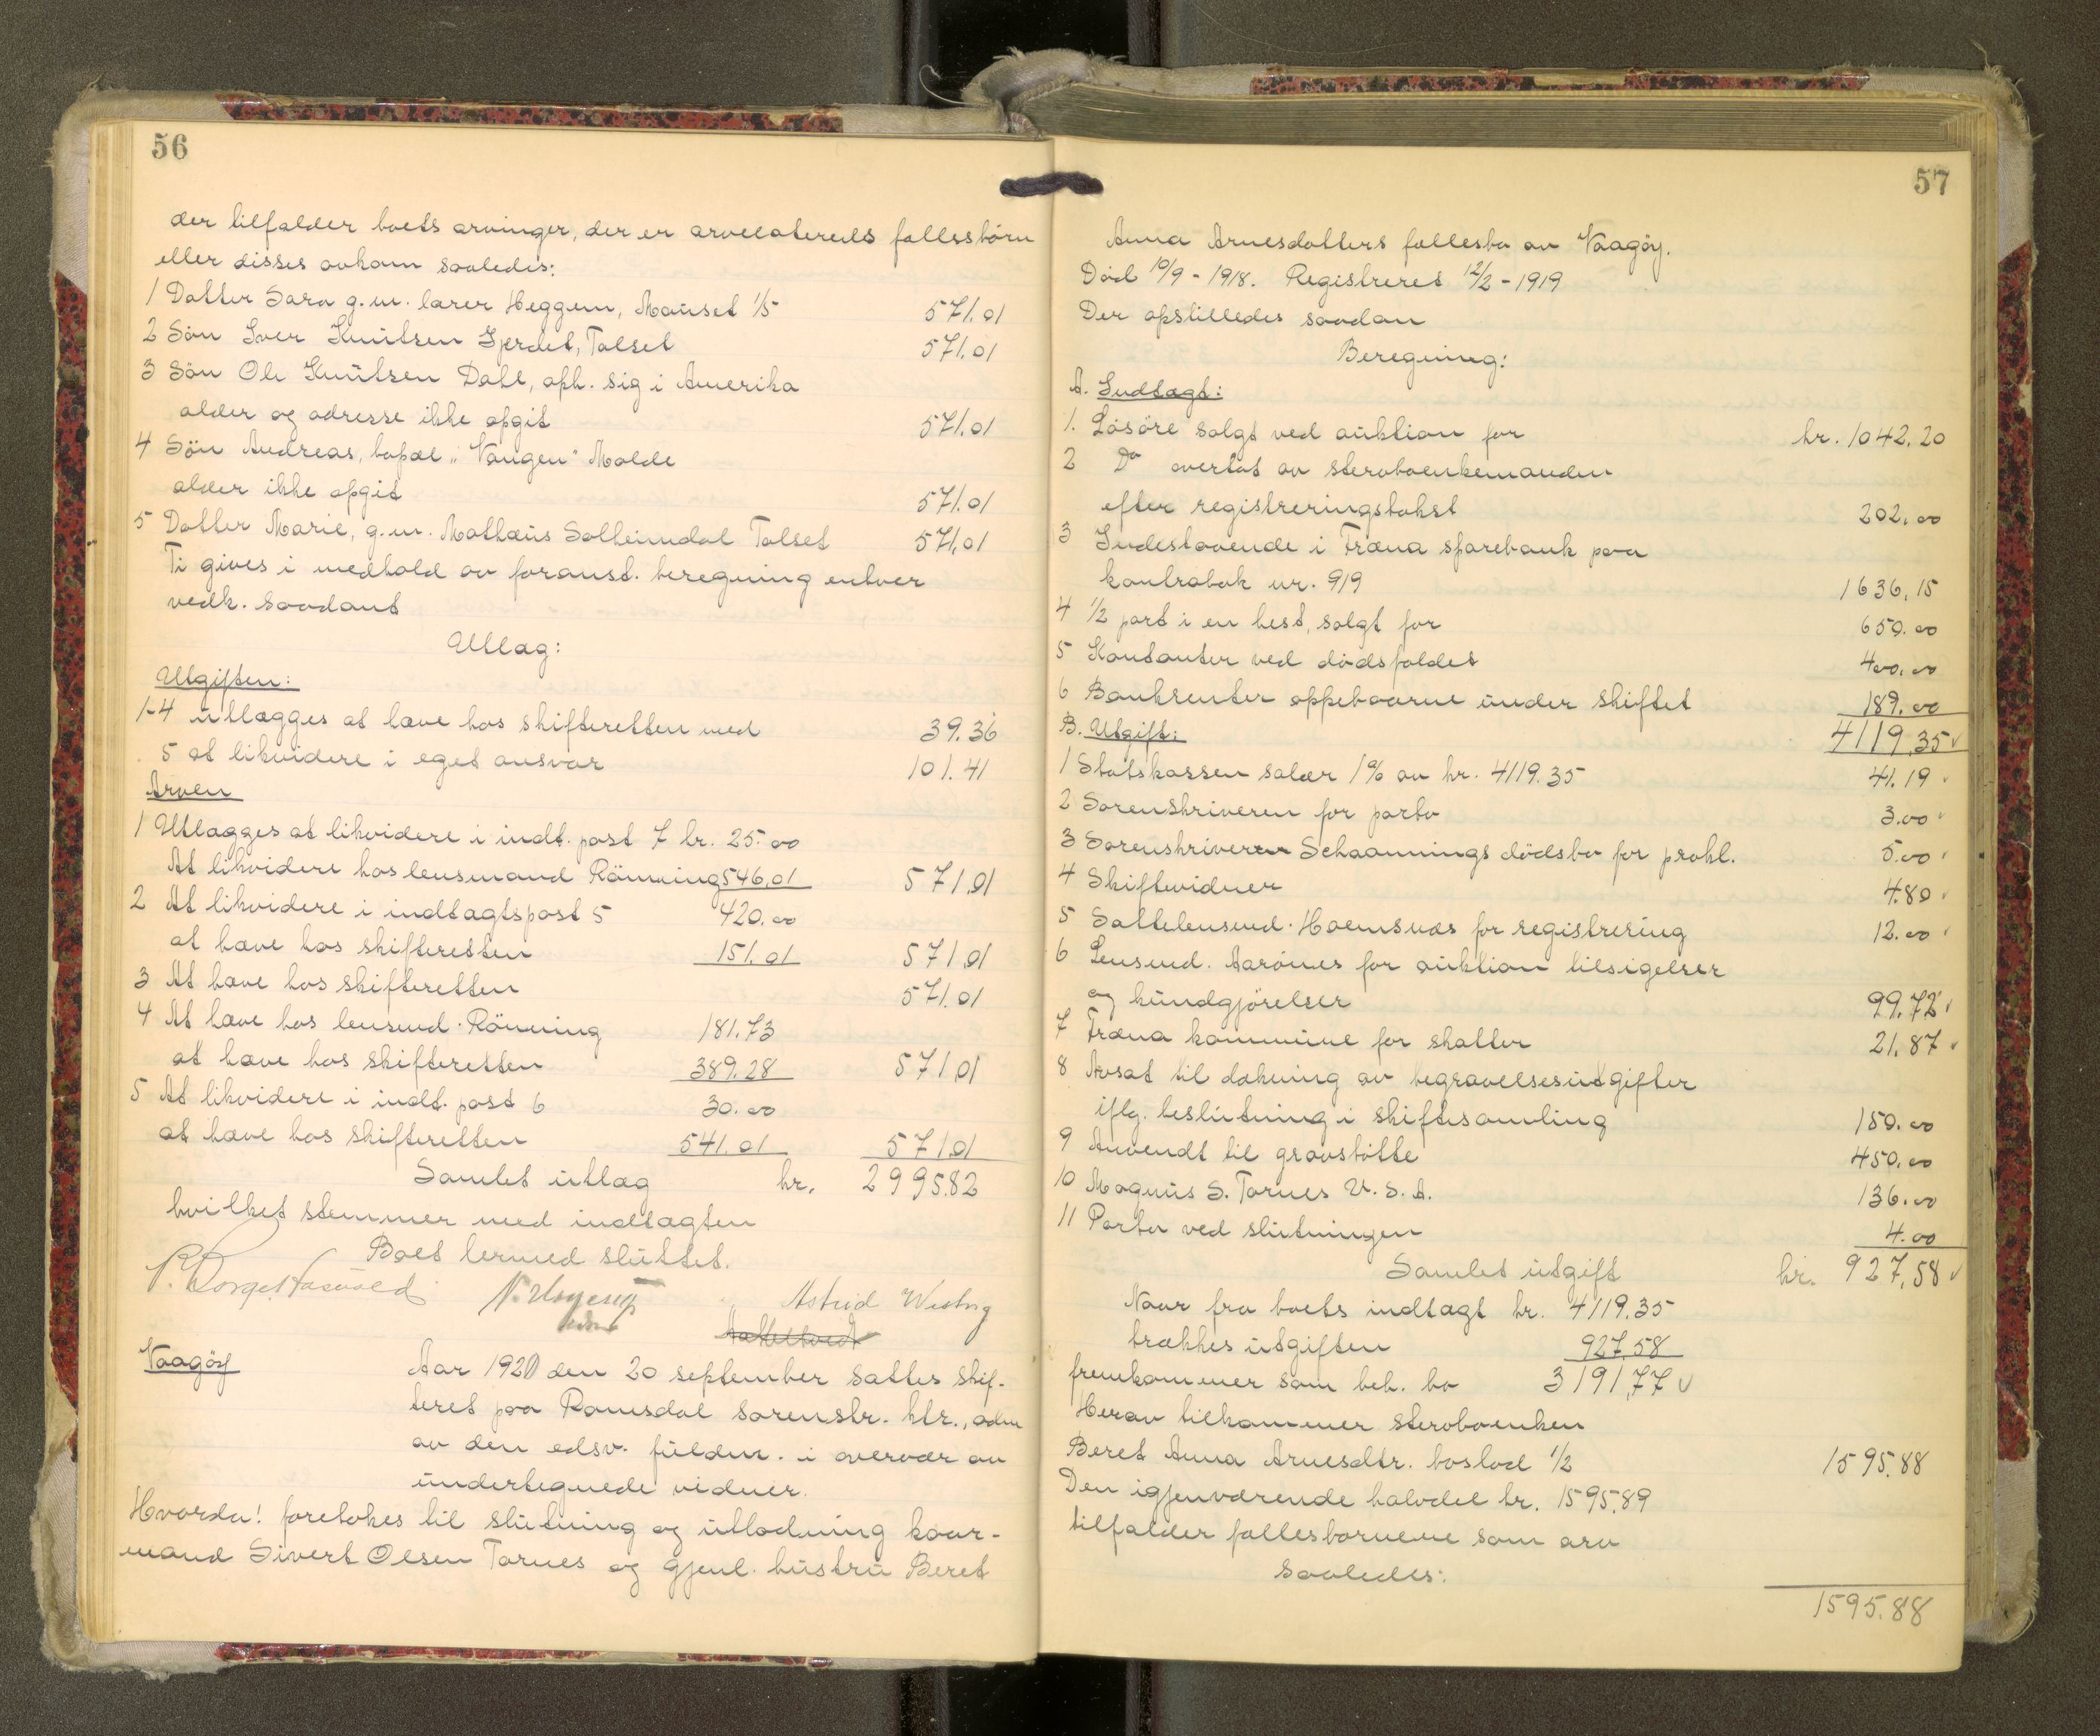 56
der tilfalder boets arvinger, der er arvelaterens fællesbörn
eller disses avkom saaledes:
1 Datter Sara g.m. lærer Heggem, Mauset 1/5 571.01
2 Sön Iver Knutsen Gjerdet, Talset 571.01
3 Sön Ole Knutsen Dahl, oph. sig i Amerika
alder og adresse ikke opgit 571.01
4 Sön Andreas, bopæl "Vangen" Molde
alder ikke opgit 571.01
5 Datter Marie, g.m. Mathæus Solheimdal Talset 571,01
Ti gives i medhold av foranst. beregning enhver
vedk. saadant
Utlæg:
Utgiften:
1-4 utlægges at hæve hos skifteretten med 39.36
5 at likvidere i eget ansvar 101.41
Arven
1 Utlægges at likvidere i indt. post 7 kr. 25.00
At likvidere hos lensmand Rönning 546,01 571.01
2 At likvidere i indtægtspost 5 420.00
at hæve hos skifteretten 151.01 571.01
3 At hæve hos skifteretten 571.01
4 At hæve hos lensmd. Rönning 181.73
at hæve hos skifteretten 389.28 571.01
5 At likvidere i indt. post 6 30.00
at hæve hos skifteretten 541.01 571.01
Samlet utlæg kr. 2995.82
hvilket stemmer med indtægten
Boet hermed sluttet.
Astrid
Vaagöy Aar 1920 den 20 september sattes skif-
teret paa Romsdal sorenskr. ktr., adm
av den edsv. fuldm. i overvær av
undertegnede vidner.
Hvorda! foretokes til slutning og utlodning kaar-
mand Sivert Olsen Tornes og gjenl. hustru Beret
57
Anna Arnesdatters fællesbo av Vaagöy.
Död 10/9 - 1918. Registreret 12/2 - 1919
Der opstilledes saadan
Beregning:
A. Indtægt:
1. Lösöre solgt ved auktion for kr. 1042.20
2 Do overtat av sterboenkemanden
efter registreringstakst 202.00
3 Indestaaende i Fræna sparebank paa
kontrabok nr. 919 1636,15
4 1/2 part i en hest, solgt for 650.00
5 Kontanter ved dödsfaldet 400.00
6 Bankrenter oppebaarne under skiftet 189.00
4119.35
B. Utgift:
1 Statskassen salær 1% av kr. 4119.35 41.19
2 Sorenskriveren for porto 3.00
3 Sorenskriveren Schaannings dödsbo for prokl. 5.00
4 Skiftevidner 4.80
5 Sættelensmd. Haemsnæs for registrering 12.00
6 Lensmd. Aarönes for auktion tilsigelser
og kundgjörelser 99.72
7 Fræna kommune for skatter 21.87
8 Avsat til dækning av begravelsesutgifter
iflg. beslutning i skiftesamling 150.00
9 Anvendt til gravstötte 450.00
10 Magnus S. Tornes U.S.A. 136.00
11 Porto ved slutningen 4.00
Samlet utgift kr. 927,58
Naar fra boets indtægt kr. 4119.35
trækkes utgiften 927,58
fremkommer som beh. bo 3191,77
Herav tilkommer sterboenken
Beret Anna Arnesdtr. boslod 1/2 1595.88
Den igjenværende halvdel kr. 1595.89
tilfalder fællesbarnene som arv
saaledes:
1595.88